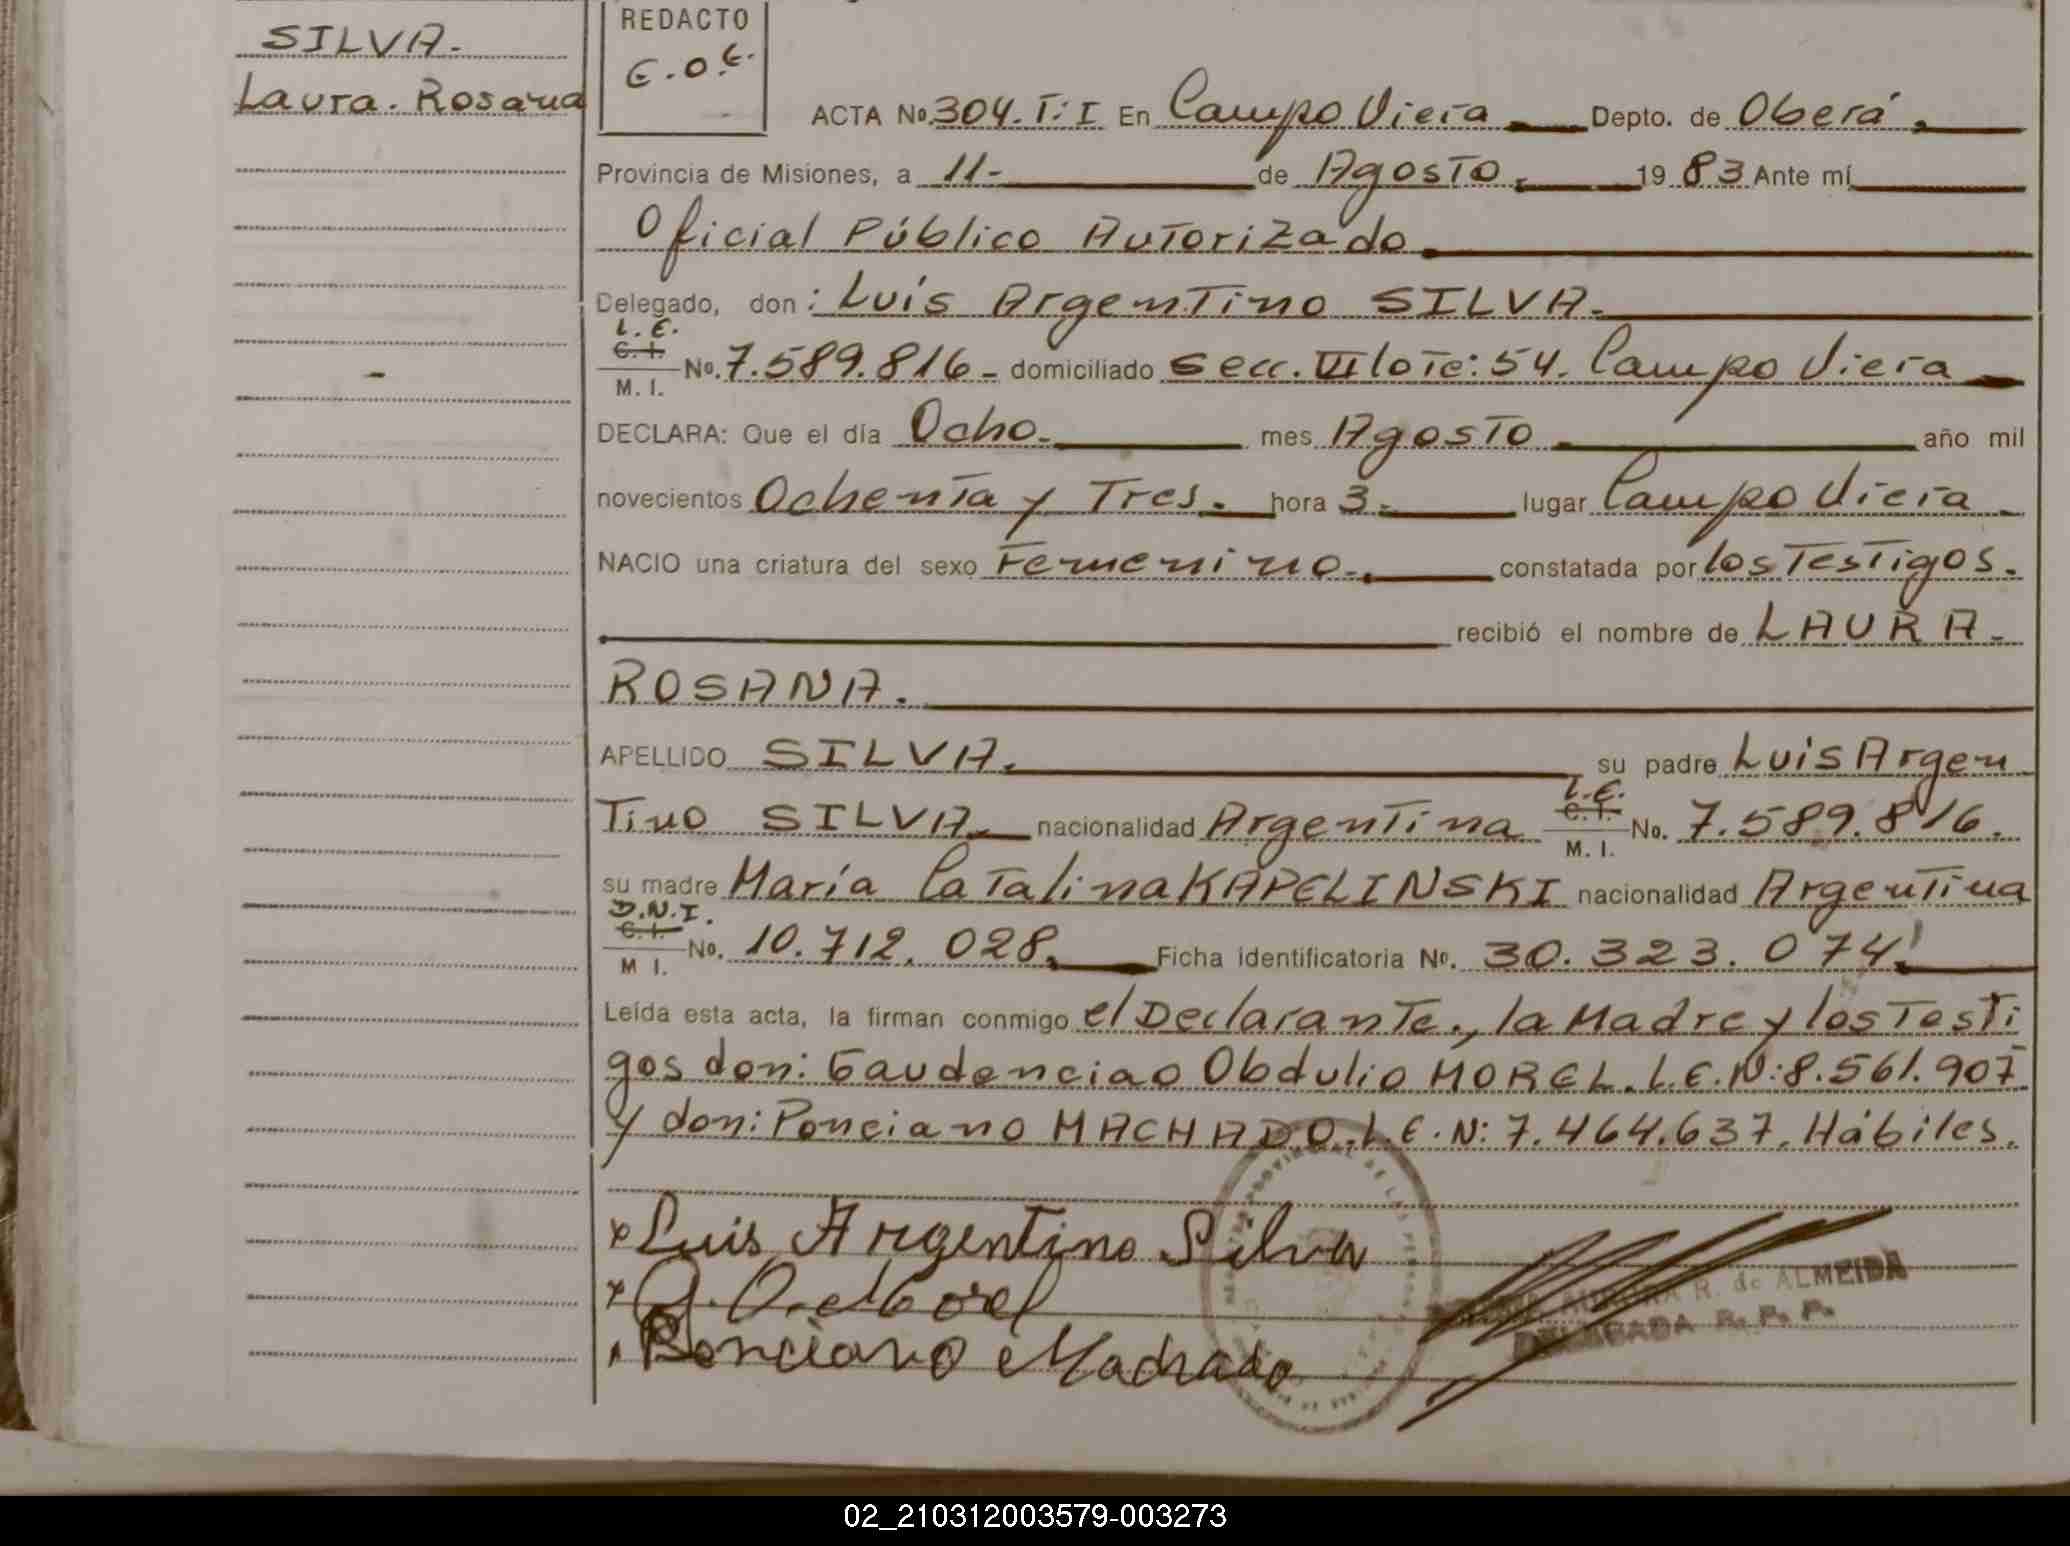 SILVA.
Laura. Rosana
REDACTO
E.O.E.
ACTA No. 304. T: I En Campo Viera Depto. de Oberá.
Provincia de Misiones, a 11- de Agosto. 19 83 Ante mí
Oficial Público Autorizado
Delegado, don: Luís Argentino SILVA.
L.E.
C. I.
M. I.
No. 7.589.816- domiciliado secc. VII lote: 54. Campo Viera
DECLARA: Que el día Ocho. mes Agosto año mil
novecientos Ochenta y Tres. hora 3. lugar Campo Viera
NACIO una criatura del sexo Femenino. constatada por los Testigos.
recibió el nombre de LAURA.
ROSANA.
APELLIDO SILVA. su padre Luis Argen
L.E.
C. I.
M. I.
Tino SILVA. nacionalidad Argentina No. 7.589.816.
su madre María Catalina KAPELINSKI nacionalidad Argentina
D.N.I.
C. I.
M I.
No. 10.712.028. Ficha identificatoria No. 30.323.074.
Leída esta acta, la firman conmigo el Declarante., la Madre y los Testi
gos don: Gaudenciao Obdulio MOREL. L.E.N: 8.561.907
y don: Ponciano MACHADO. L.E.N: 7.464.637. Hábiles.
x Luis Argentino Silva
x G. O. Morel
Ponciano Machado
AURORA R. de ALMEIDA
DELEGADA R. P. P.
02_210312003579-003273